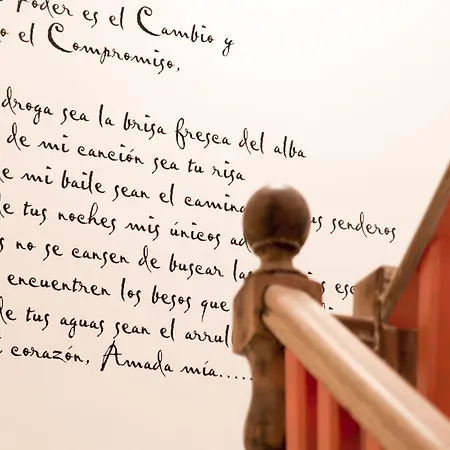 Poder es el Cambio y
o el Compromiso,
droga sea la brisa fresca del alba
de mi canción sea tu risa
de mi baile sean el camin us senderos
de tus noches mis únicos ad
s no se cansen de buscar la
encuentren los besos que
de tus aguas sean el arrul
i corazón, Amada mía.....